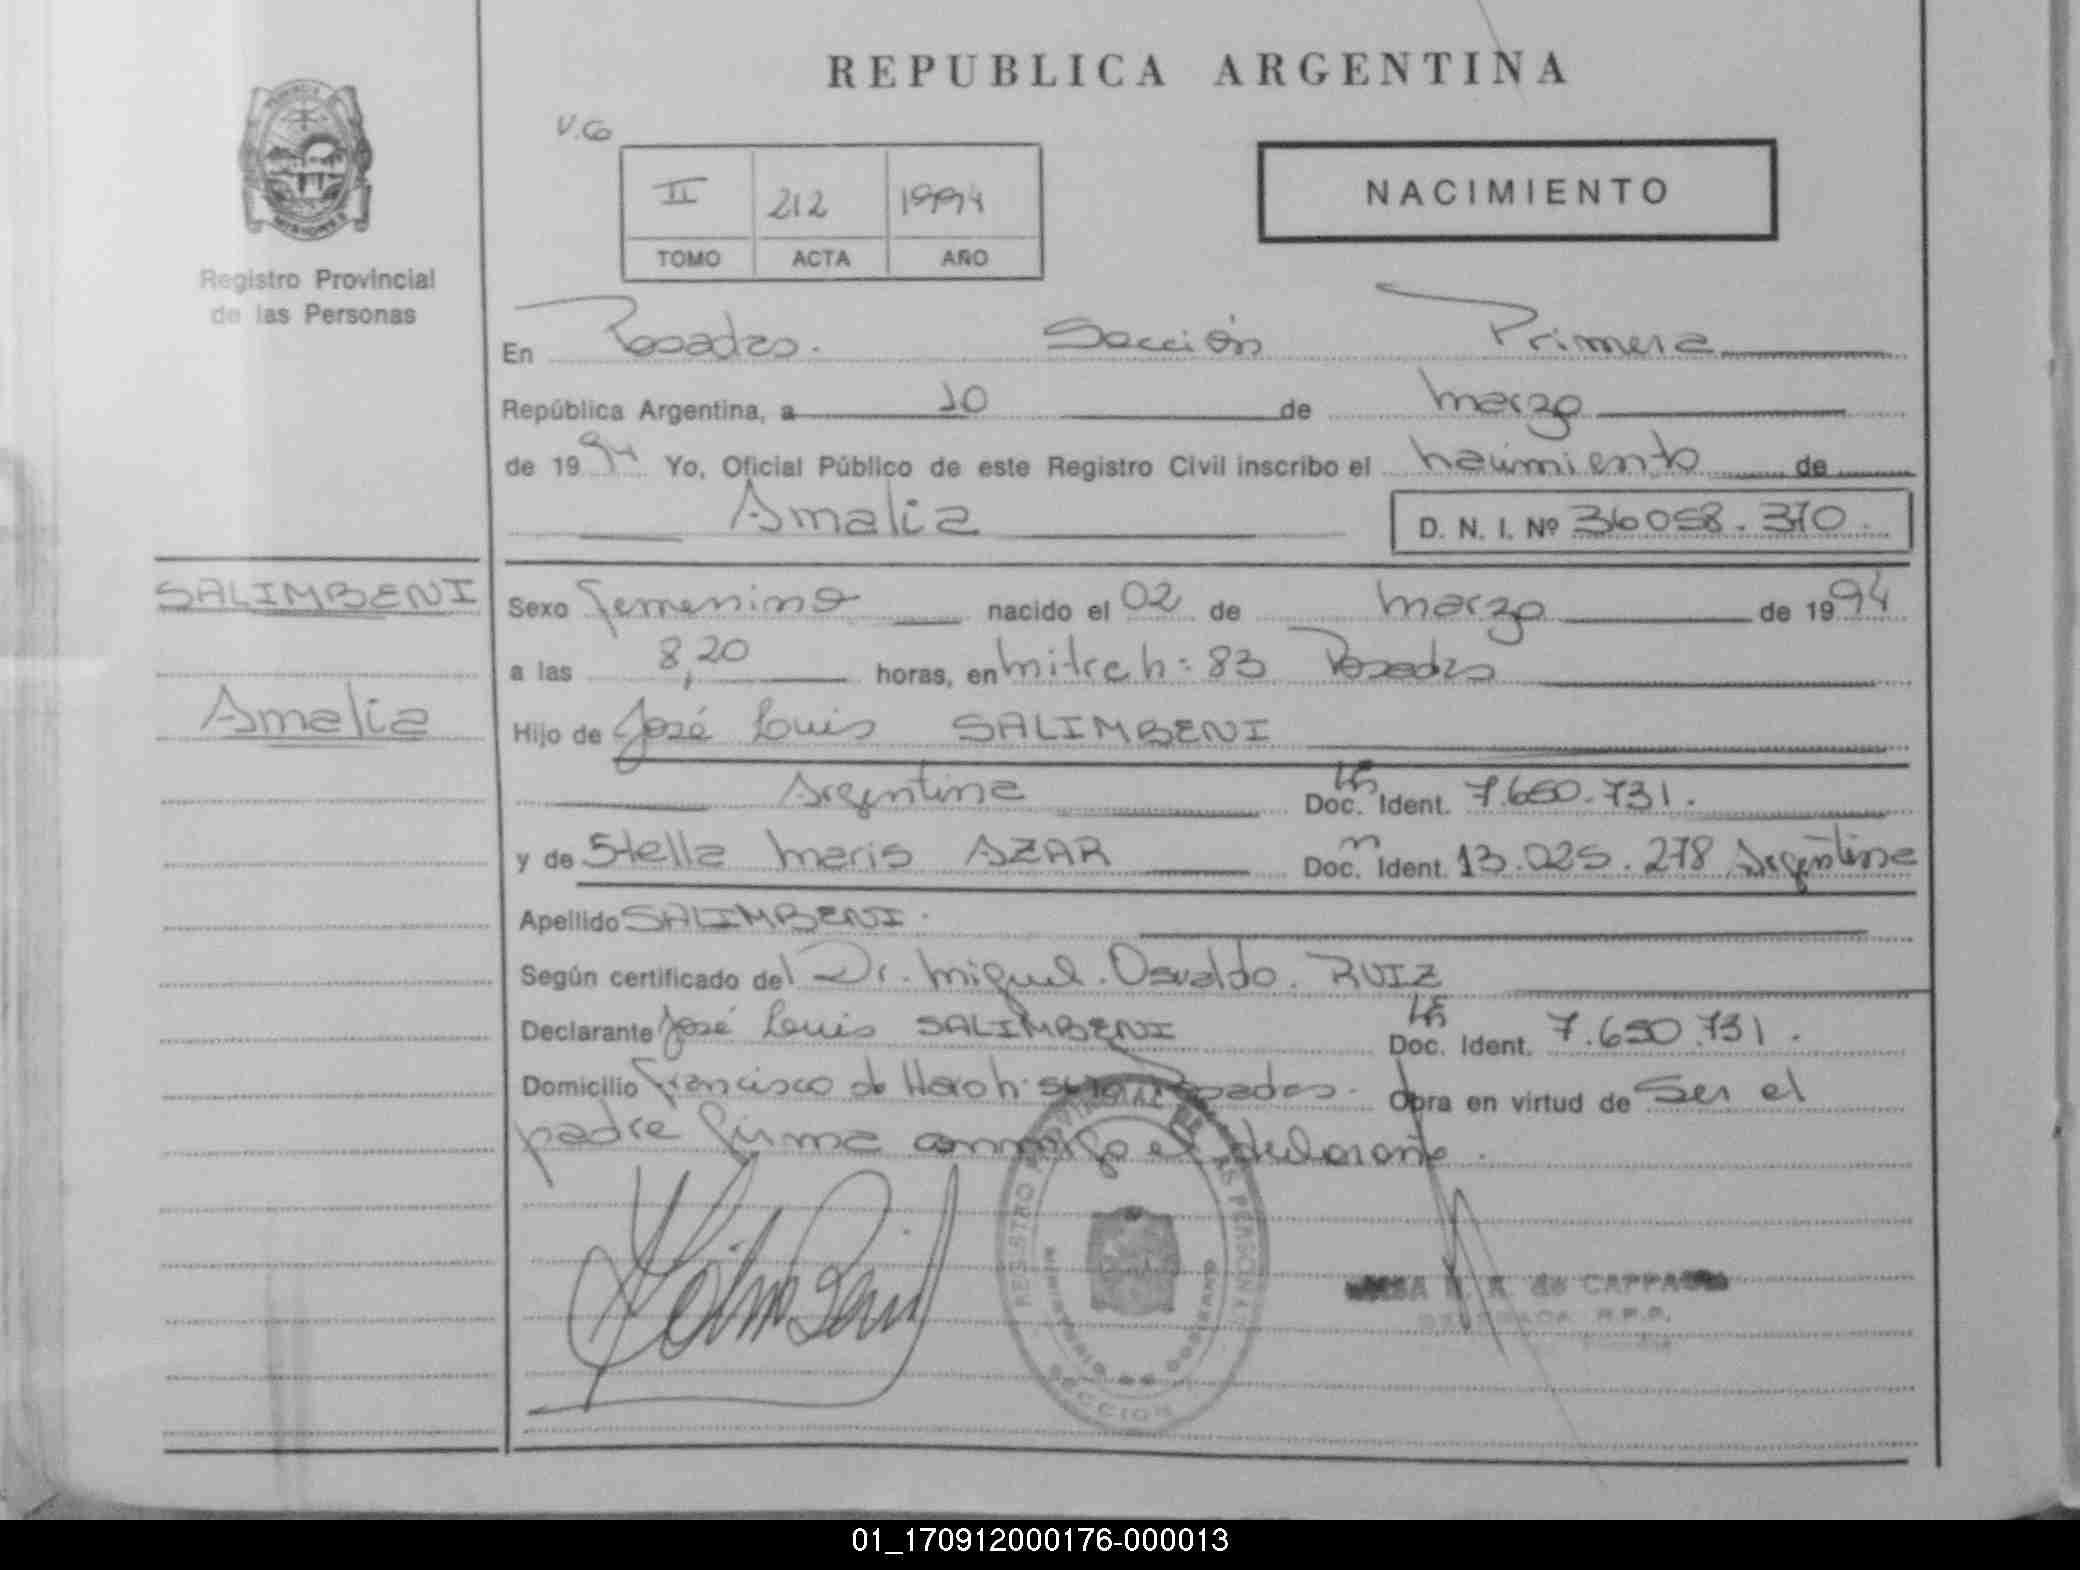 REPUBLICA ARGENTINA
V.Co
NACIMIENTO
II 212 1994
TOMO ACTA AÑO
Registro Provincial
de las Personas
En Posadas. Sección Primera
República Argentina, a 10 de marzo
de 1994 Yo, Oficial Público de este Registro Civil inscribo el nacimiento de
Amalia
D. N. I. Nº 36058.370.
SALIMBENI
Amalia
Sexo femenino nacido el 02 de marzo de 1994
a las 8,20 horas, en mitre n: 83 Posadas
Hijo de José Luis SALIMBENI
Argentina Doc. Ident. 7.650.731.
y de Stella maris AZAR Doc. Ident. 13.025.278 Argentina
Apellido SALIMBENI.
Según certificado del Dr. miguel. Osvaldo. RUIZ
Declarante José Luis SALIMBENI Doc. Ident. 7.650.731.
Domicilio Francisco de Haro n: Posadas. Obra en virtud de Ser el
padre firma conmigo el declarante.
REGISTRO PROVINCIAL DE LAS PERSONAS
MINISTERIO DE GOBIERNO
SECCION
de CAPPA
R.P.P.
01_170912000176-000013